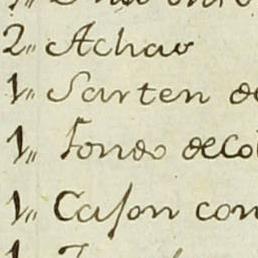 2,, Achao
1,, Sarten de
1,, Fondo de Co
1,, Cason con